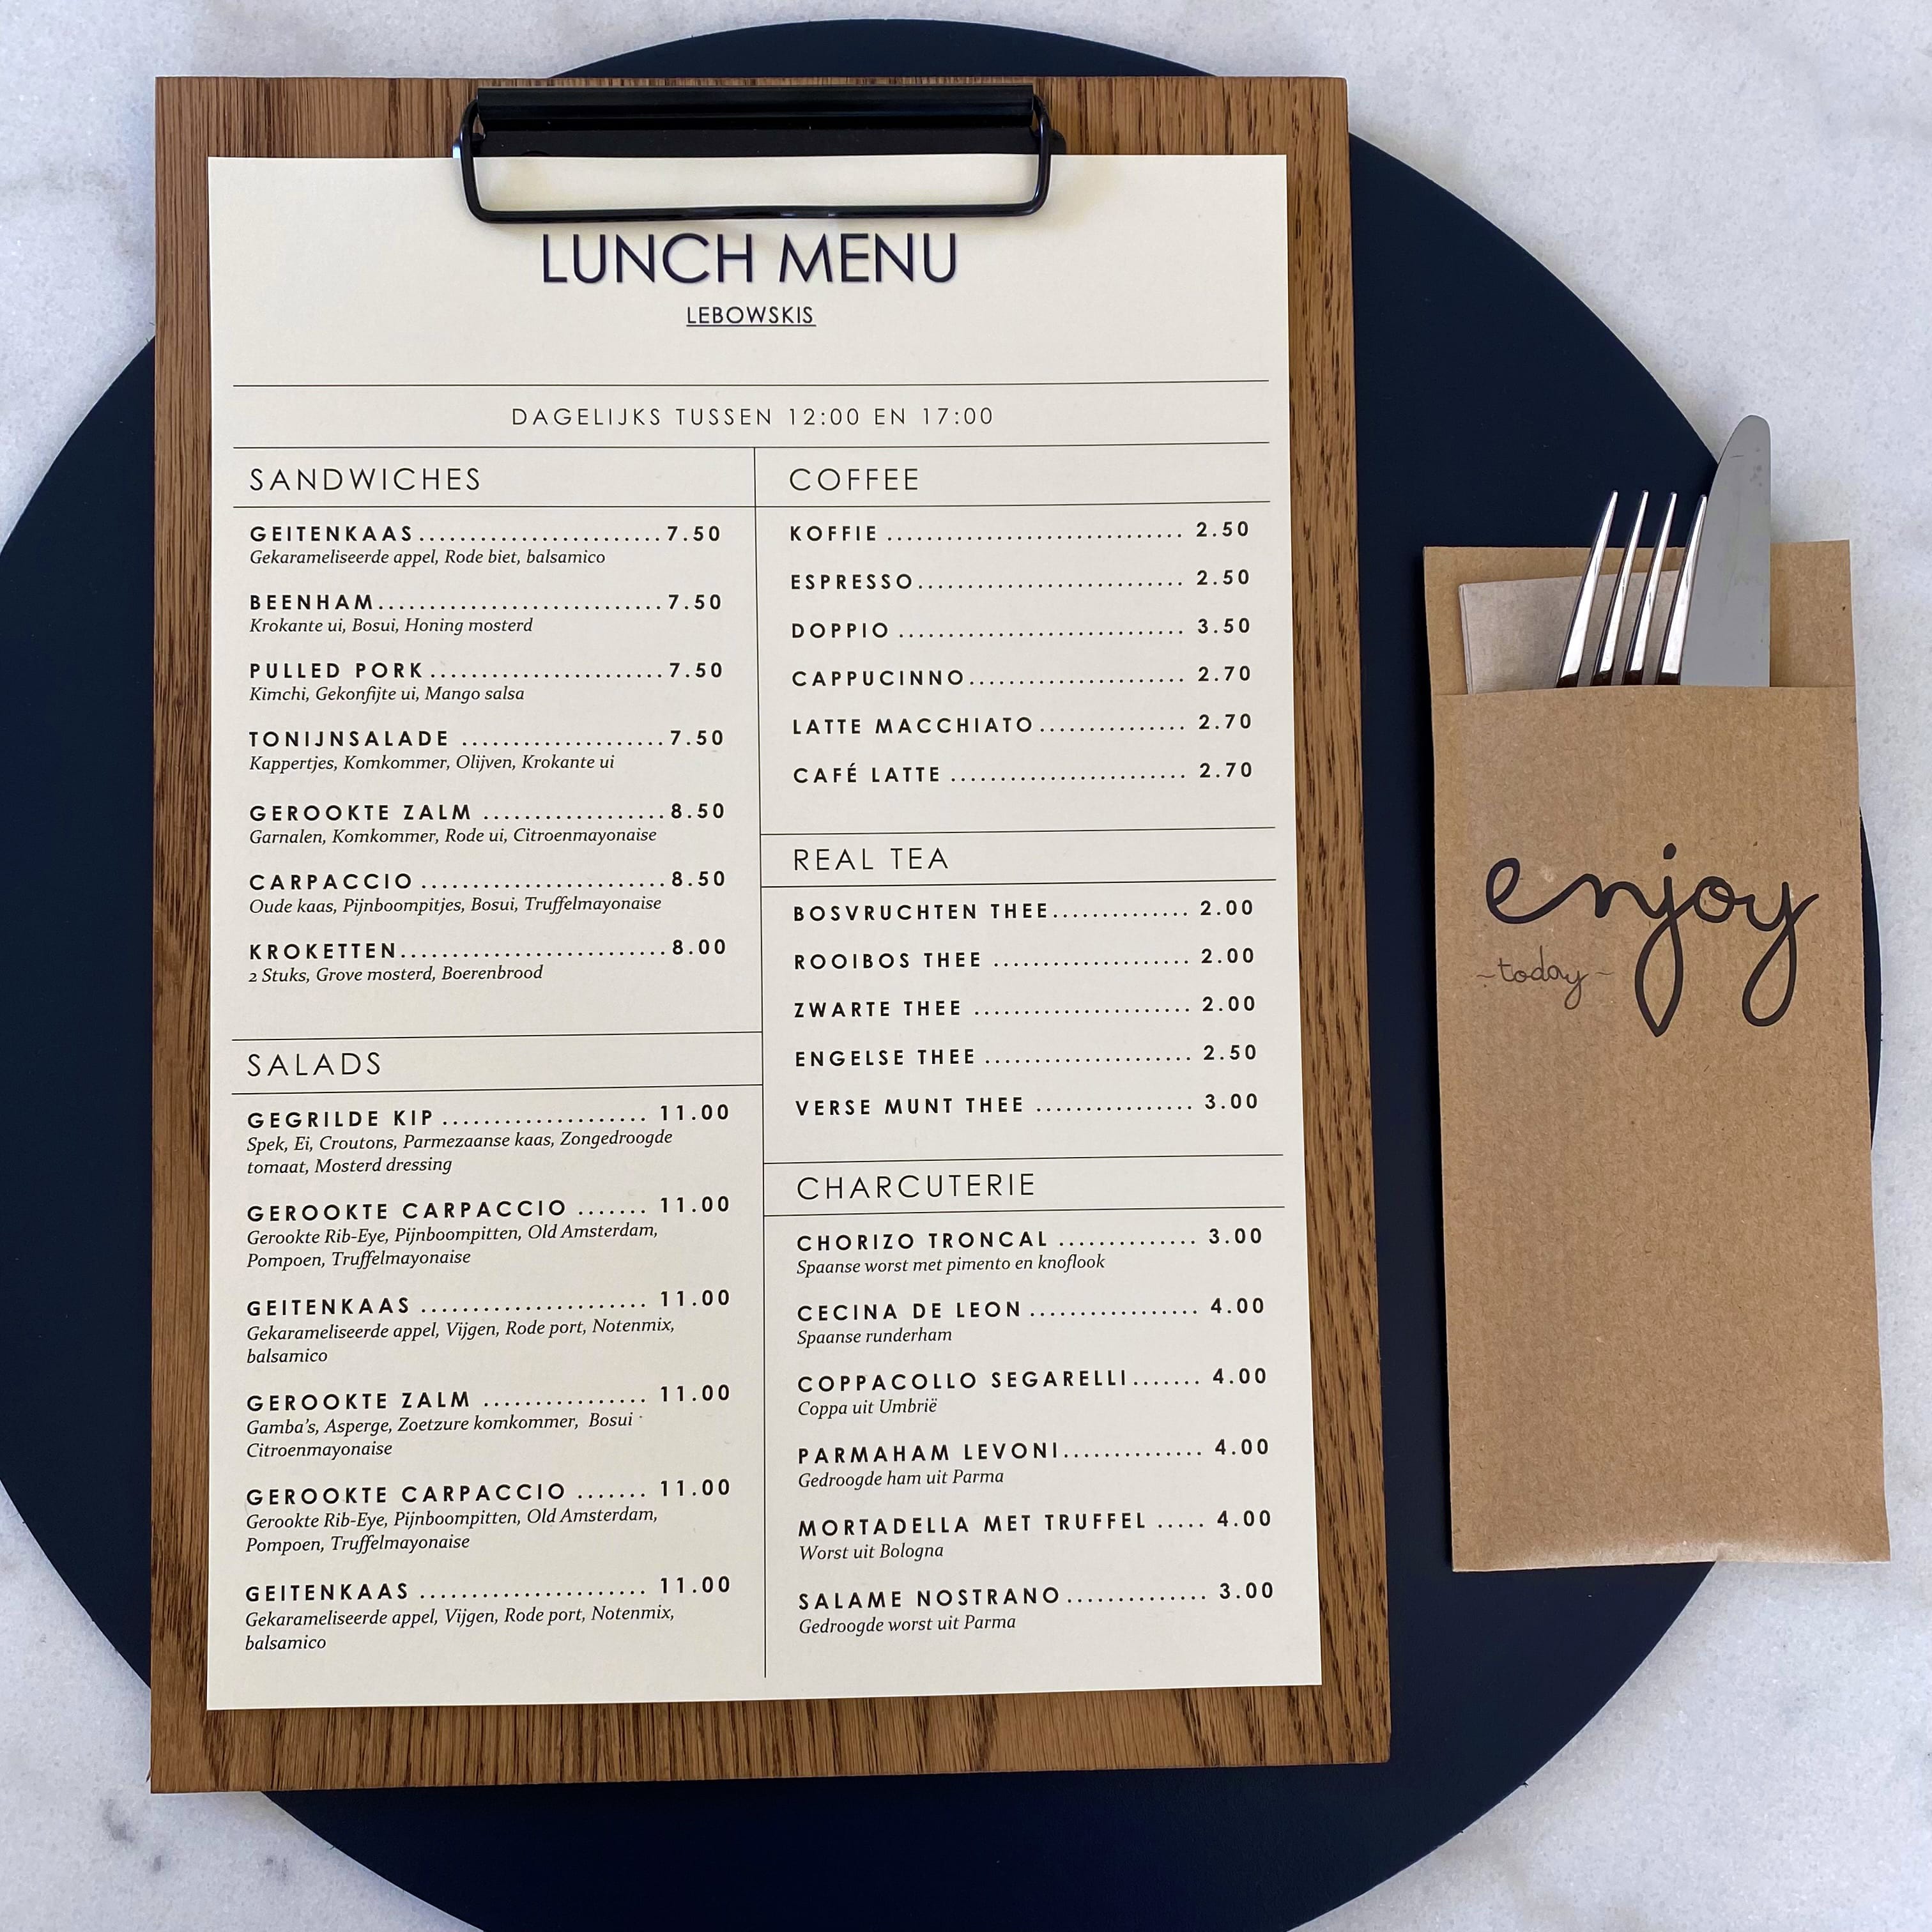 LUNCH MENU
LEBOWSKIS
DAGELIJKS TUSSEN 12:00 EN 17:00
SANDWICHES
GEITENKAAS........................7.50
Gekarameliseerde appel, Rode biet, balsamico
BEENHAM............................7.50
Krokante ui, Bosui, Honing mosterd
PULLED PORK.......................7.50
Kimchi, Gekonfijte ui, Mango salsa
TONIJNSALADE ....................7.50
Kappertjes, Komkommer, Olijven, Krokante ui
GEROOKTE ZALM ..................8.50
Garnalen, Komkommer, Rode ui, Citroenmayonaise
CARPACCIO ........................8.50
Oude kaas, Pijnboompitjes, Bosui, Truffelmayonaise
KROKETTEN..........................8.00
2 Stuks, Grove mosterd, Boerenbrood
SALADS
GEGRILDE KIP .................... 11.00
Spek, Ei, Croutons, Parmezaanse kaas, Zongedroogde
tomaat, Mosterd dressing
GEROOKTE CARPACCIO ....... 11.00
Gerookte Rib-Eye, Pijnboompitten, Old Amsterdam,
Pompoen, Truffelmayonaise
GEITENKAAS ...................... 11.00
Gekarameliseerde appel, Vijgen, Rode port, Notenmix,
balsamico
GEROOKTE ZALM ................ 11.00
Gamba's, Asperge, Zoetzure komkommer, Bosui
Citroenmayonaise
GEROOKTE CARPACCIO ....... 11.00
Gerookte Rib-Eye, Pijnboompitten, Old Amsterdam,
Pompoen, Truffelmayonaise
GEITENKAAS ...................... 11.00
Gekarameliseerde appel, Vijgen, Rode port, Notenmix,
balsamico
COFFEE
KOFFIE ............................. 2.50
ESPRESSO.......................... 2.50
DOPPIO ............................ 3.50
CAPPUCINNO..................... 2.70
LATTE MACCHIATO............... 2.70
CAFÉ LATTE ....................... 2.70
REAL TEA
BOSVRUCHTEN THEE.............. 2.00
ROOIBOS THEE ................... 2.00
ZWARTE THEE ..................... 2.00
ENGELSE THEE .................... 2.50
VERSE MUNT THEE ................ 3.00
CHARCUTERIE
CHORIZO TRONCAL .............. 3.00
Spaanse worst met pimento en knoflook
CECINA DE LEON ................. 4.00
Spaanse runderham
COPPACOLLO SEGARELLI....... 4.00
Coppa uit Umbrië
PARMAHAM LEVONI.............. 4.00
Gedroogde ham uit Parma
MORTADELLA MET TRUFFEL ..... 4.00
Worst uit Bologna
SALAME NOSTRANO.............. 3.00
Gedroogde worst uit Parma
enjoy
~today~